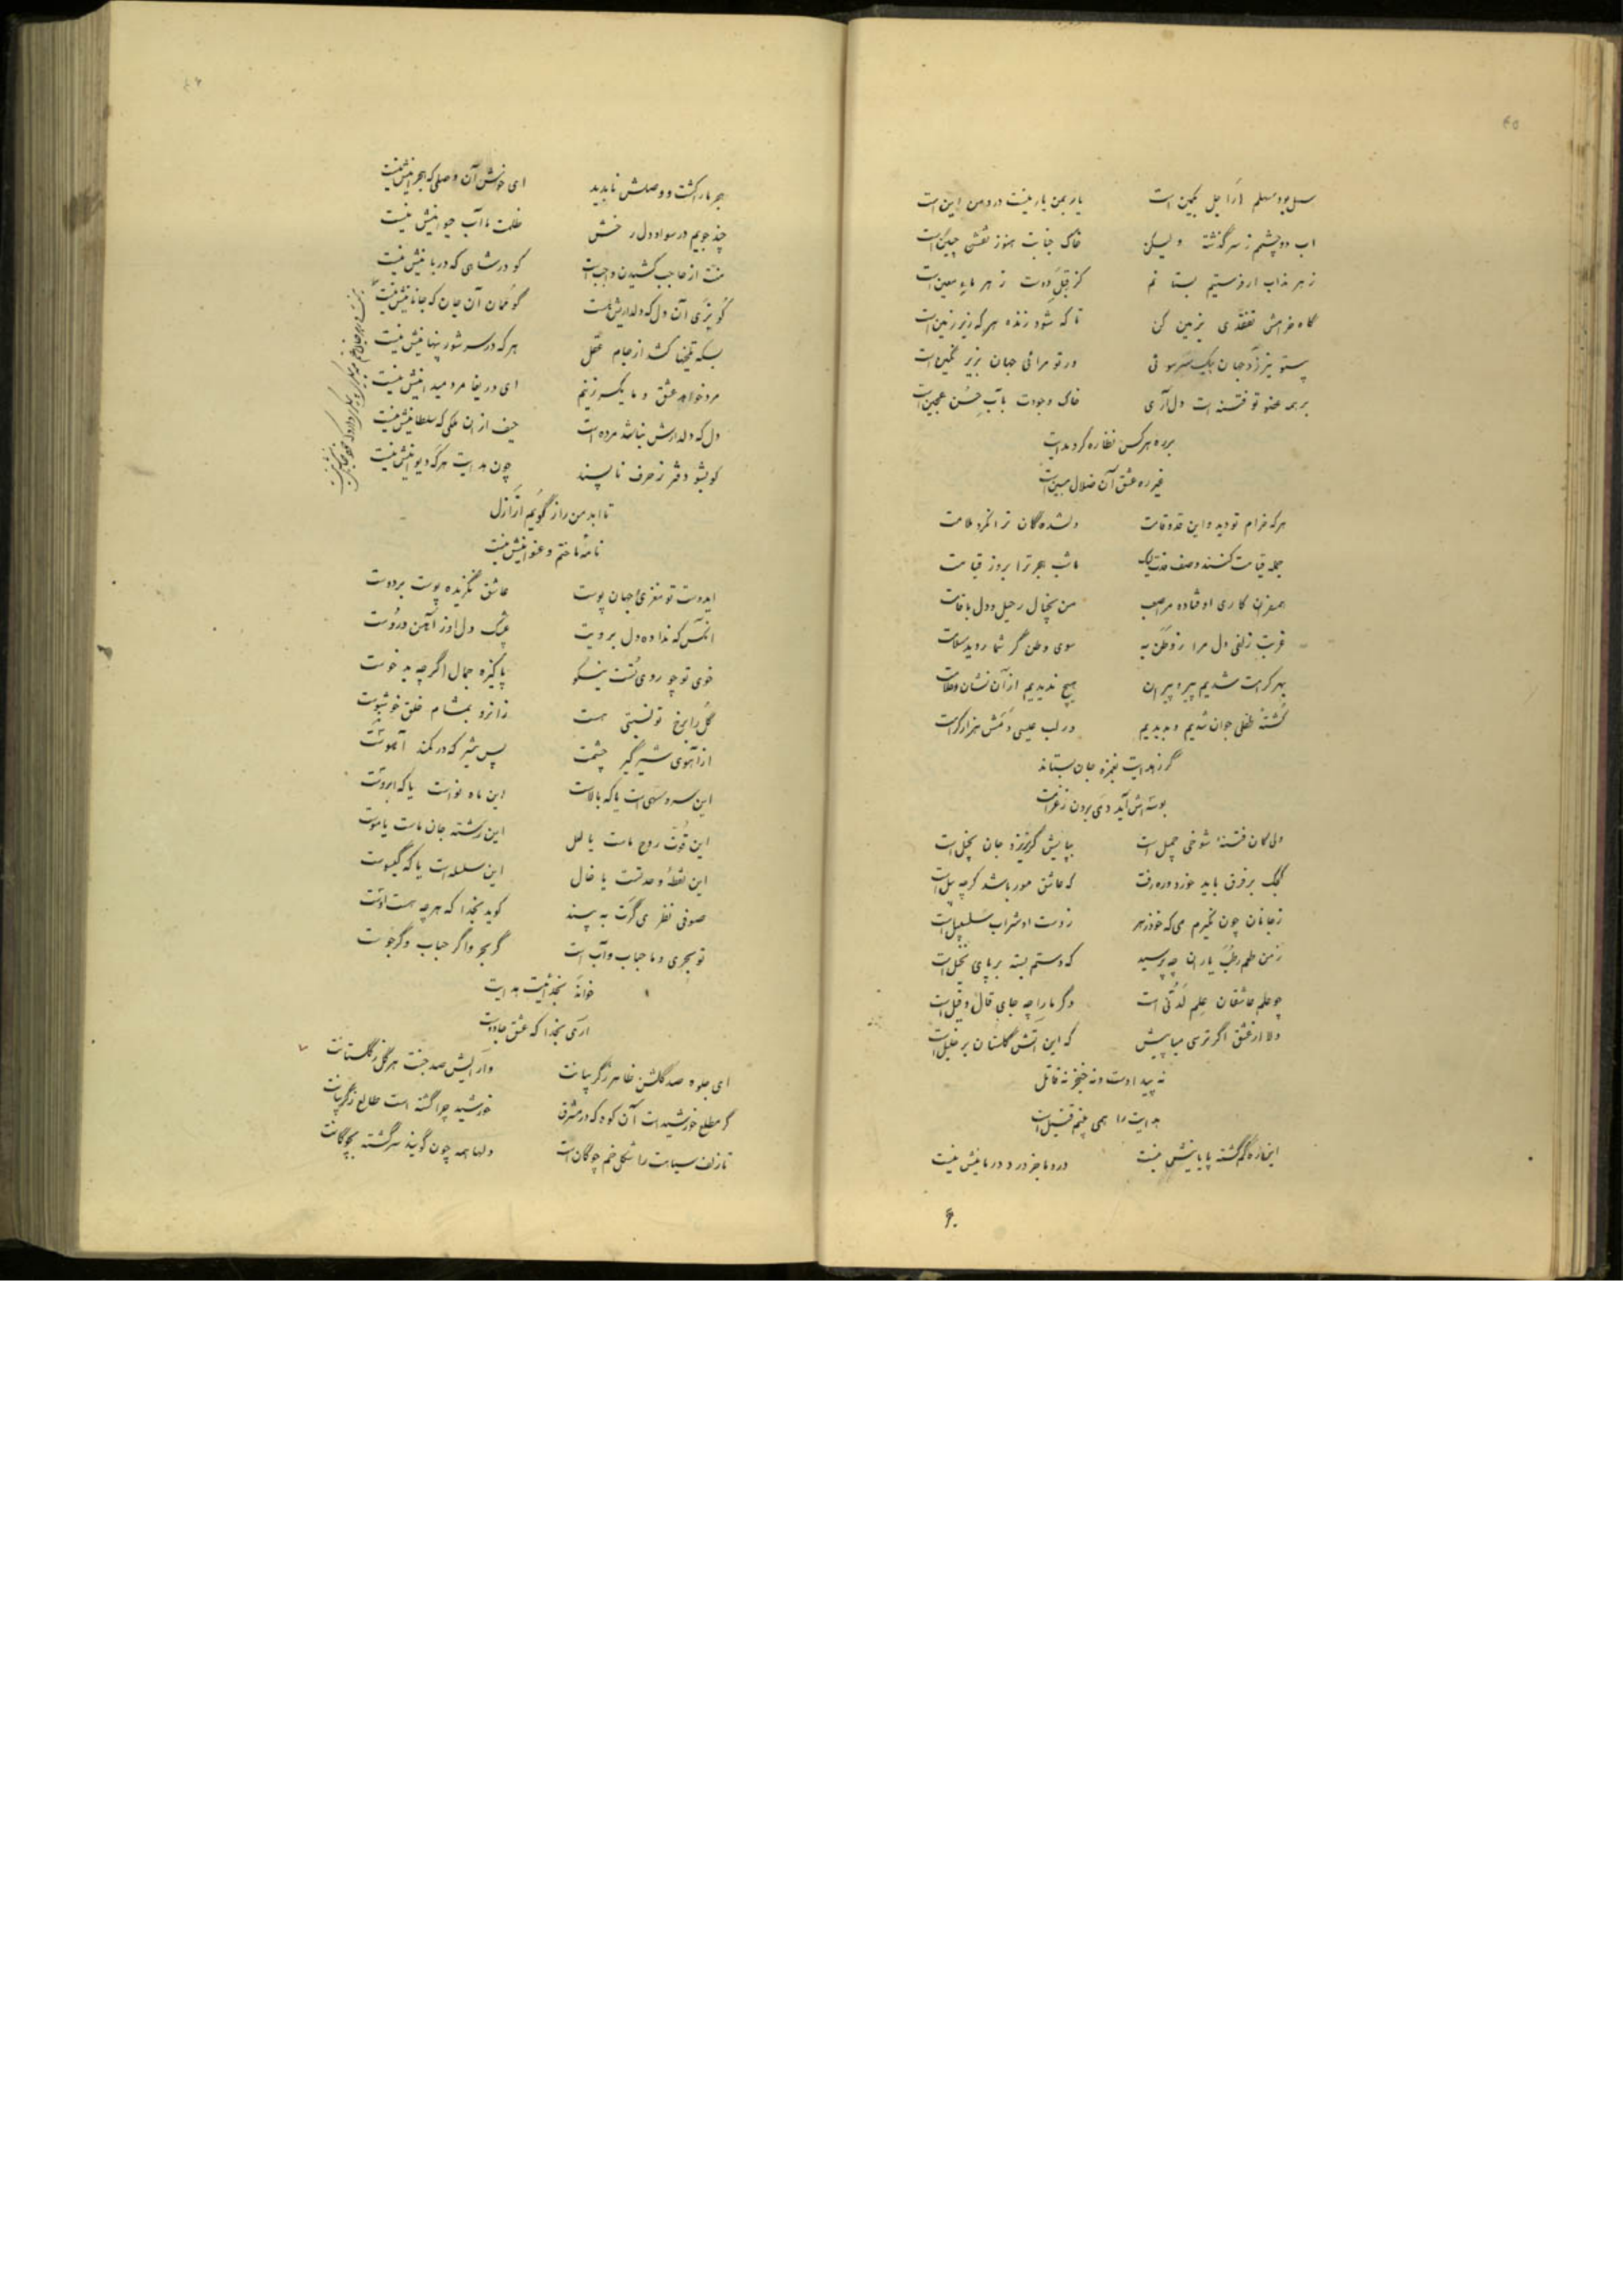 ۴۵
سهل بود مهلم ار اجل بکمین است یار بمن یار نیست درد من این است
اب دو چشمم ز سر گذشته ولیکن خاک جنابت هنوز نقش جبین است
زهر مذاب ار فرستیم بستانم کز قبل دوست زهر ماء معین است
گاه خرامش تفقدی بزمین کن تا که شود زنده هر که زیر زمین است
بر همه عضو تو فتنه است دل آرای خاک وجودت بآب حسن عجین است
بر ره هر کس نظاره کرد هدایت
غیر ره عشق آن ضلال مبین است
هر که خرام تو دید و این قد و قامت دلشدگان ترا نکرد ملامت
جمله قیامت کنند وصف ما شب هجر ترا بروز قیامت
همسفران کاری اوفتاده مرا صعب من بخیال رحیل و دل باقامت
غربت زلفی دل مرا ز وطن به سوی وطن گر شما روید سلامت
بهر کرامت شدیم پیرو پیران هیچ ندیدیم از آن نشان و علامت
کشته طفلی جوان شدیم و بدیدیم در لب عیسی دمش هزار کرامت
گر ز هدایت بغمزه جان بستاند
بوسه اش آید دمی برون ز غرامت
ولی کان فتنه شوخی جمیل است بپایش گر نریزد جان بخیل است
کجک بر فرق باید خورد و ره رفت که عاشق مور باشد گرچه پیل است
ز جانان چون نگیرم می که خود زهر ز دست او شراب سلسبیل است
ز من طعم رطب یاران چه پرسید که دستم بسته بر پای نخیل است
چو علم عاشقان علم لدنی است دگر ما را چه جای قال و قیل است
دلا از عشق اگر ترسی میاپیش که این اتش گلستان بر خلیل است
نه پیدا دست و نه خنجر نه قاتل
هدایت را همی بینم قتیل است
این ره گم گشته پایانیش نیست درد ما جز درد درمانیش نیست
۴۶
هجر ما را کشت و وصلش ناپدید ای خوش آن وصلی که هجرانیش نیست
چند جویم در سواد دل رخش ظلمت ما آب حیوانیش نیست
منت از حاجب کشیدن واجب است کو در شاهی که دربانیش نیست
گو بزی آن دل که دلداریش هست گو ممان آن جان که جانانیش نیست
بسکه تلخیها کشد از جام عقل هر که در سر شور پنهانیش نیست
مرد خواهد عشق و ما یکسر زنیم ای دریغا مرد میدانیش نیست
دل که دلدارش نباشد مرده است حیف از ان ملکی که سلطانیش نیست
گو بشو دفتر ز حرف ناپسند چون هدایت هر که دیوانیش نیست
تا ابد من راز گویم از ازل
نامه ما ختم و عنوانیش نیست
ایدوست تو مغزی و جهان پوست عاشق نگزیده پوست بر دوست
انکس که نداده دل برویت سنگ دل او ز آهن و روست
خوی تو چو روی تست نیکو پاکیزه جمال اگر چه بد خوست
گل را برخ تو نسبتی هست زانرو بمشام خلق خوشبوست
از آهوی شیر گیر چشمت بس شیر که در کمند آهوست
این سرو سهی است یا که بالاست این ماه نواست یا که ابروست
این قوت روح ماست یا لعل این رشته جان ماست یا موست
این نقطه وحدتست یا خال این سلسله است یا که گیسوست
صوفی نظری گرت به پسند گوید بخدا که هر چه هست اوست
تو بحری و ما حباب و آب است گر بحر و اگر حباب و گر جوست
خوانند بخدائیت هدایت
اری بخدا که عشق جادوست
ای جلوه صد گلشن ظاهر ز گریبانت وارایش صد جنت هر گل ز گلستانت
گر مطلع خورشید است آن کوه که در مشرق خورشید چرا گشته است طالع ز گریبانت
تا زلف سیاهت را شکل خم چوگان است دلها همه چون گویند سرگشته بچوگانت